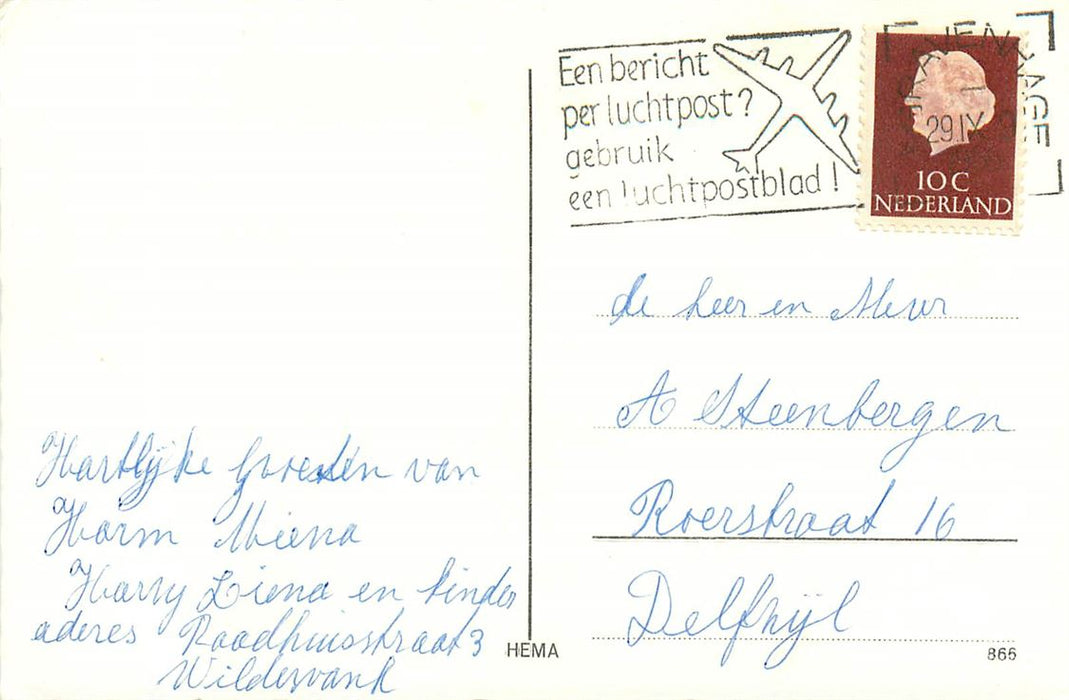 Een bericht
per luchtpost?
gebruik
een luchtpostblad!
29.IX
10C
NEDERLAND
de heer en Mevr
A Steenbergen
Roerstraat 16
Delfzijl
Hartlijke Groeten van
Harm Miena
Harry Liena en kinder
aderes Raadhuisstraat 3
Wildervank
HEMA
866